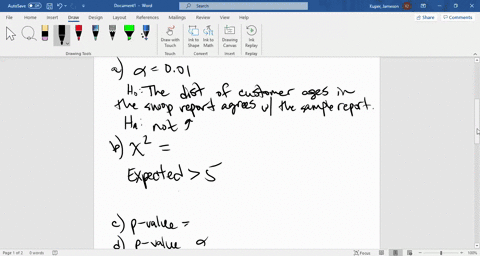 AutoSave Off Document1 - Word Search Kuper, Jamesain
File Home Insert Draw Design Layout References Mailings Review View Help Share Comments
Draw with Touch Ink to Shape Ink to Math Drawing Canvas Ink Replay
Drawing Tools Convert Insert Replay
a) α = 0.01
H₀: The dist of customer ages in
the snoop report agrees w/ the sample report.
Hₐ: not ↑
b) χ² =
Expected > 5
c) p-value =
d) p-value α
Page 1 of 2 0 words Focus 100%